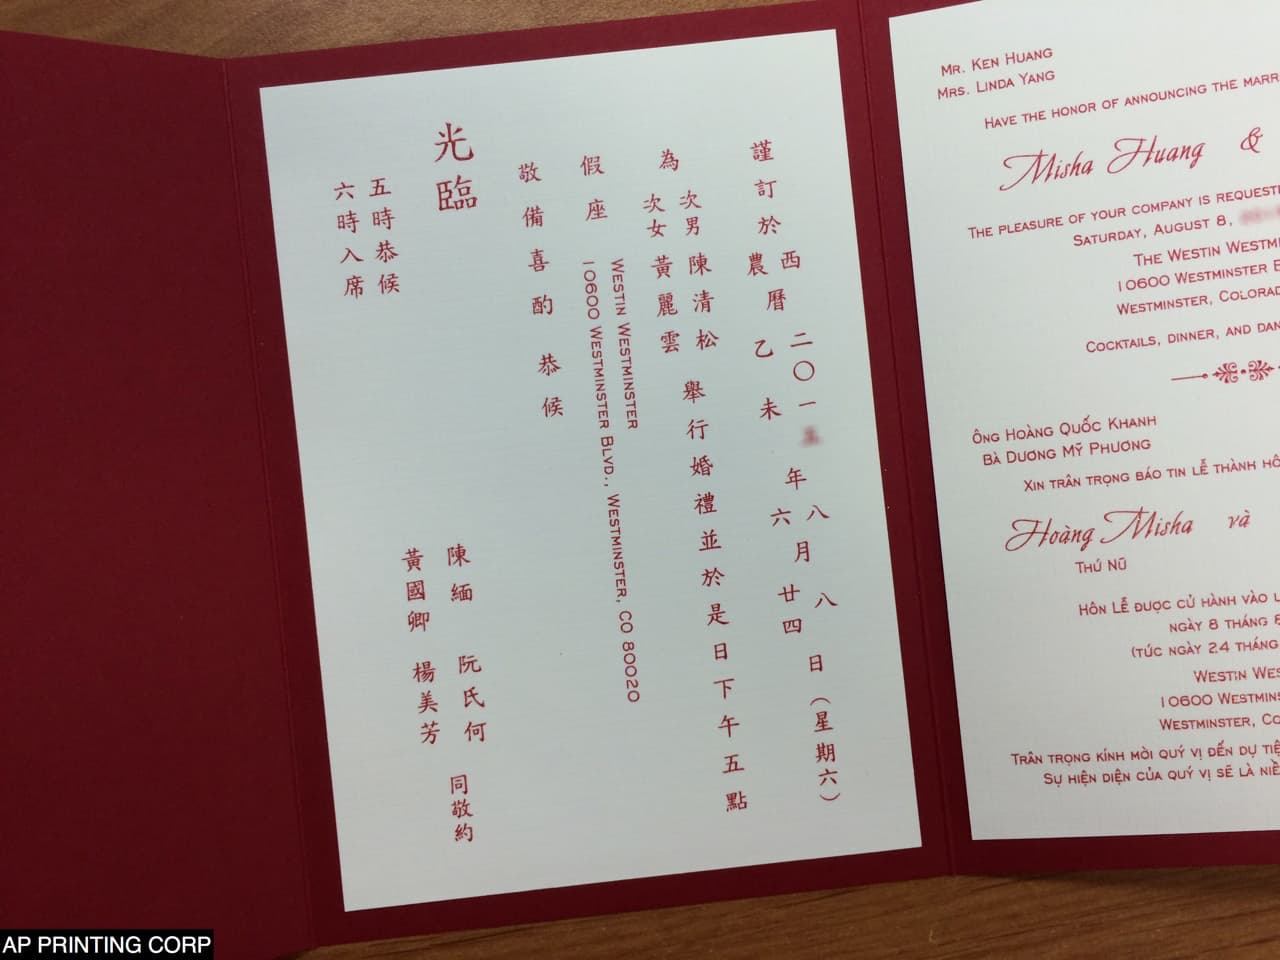 謹訂於
西曆二〇一年八月八日（星期六）
農曆乙未年六月廿四日
為
次男陳清松
次女黃麗雲
舉行婚禮並於是日下午五點
假座
WESTIN WESTMINSTER
10600 WESTMINSTER BLVD., WESTMINSTER, CO 80020
敬備喜酌 恭候
光臨
陳緬 阮氏何
黃國卿 楊美芳
同敬約
五時恭候
六時入席
MR. KEN HUANG
MRS. LINDA YANG
HAVE THE HONOR OF ANNOUNCING THE
Misha Huang &
THE PLEASURE OF YOUR COMPANY IS
SATURDAY, AUGUST 8,
THE WESTIN
10600 WESTMINSTER
WESTMINSTER,
COCKTAILS, DINNER, AND
ÔNG HOÀNG QUỐC KHANH
BÀ DƯƠNG MỸ PHƯƠNG
XIN TRÂN TRỌNG BÁO TIN LỄ THÀNH
Hoàng Misha và
THỨ NỮ
HÔN LỄ ĐƯỢC CỬ HÀNH VÀO
NGÀY 8 THÁNG 8
(TỨC NGÀY 24 THÁNG
WESTIN
10600
WESTMINSTER,
TRÂN TRỌNG KÍNH MỜI QUÝ VỊ ĐẾN DỰ
SỰ HIỆN DIỆN CỦA QUÝ VỊ SẼ LÀ
AP PRINTING CORP